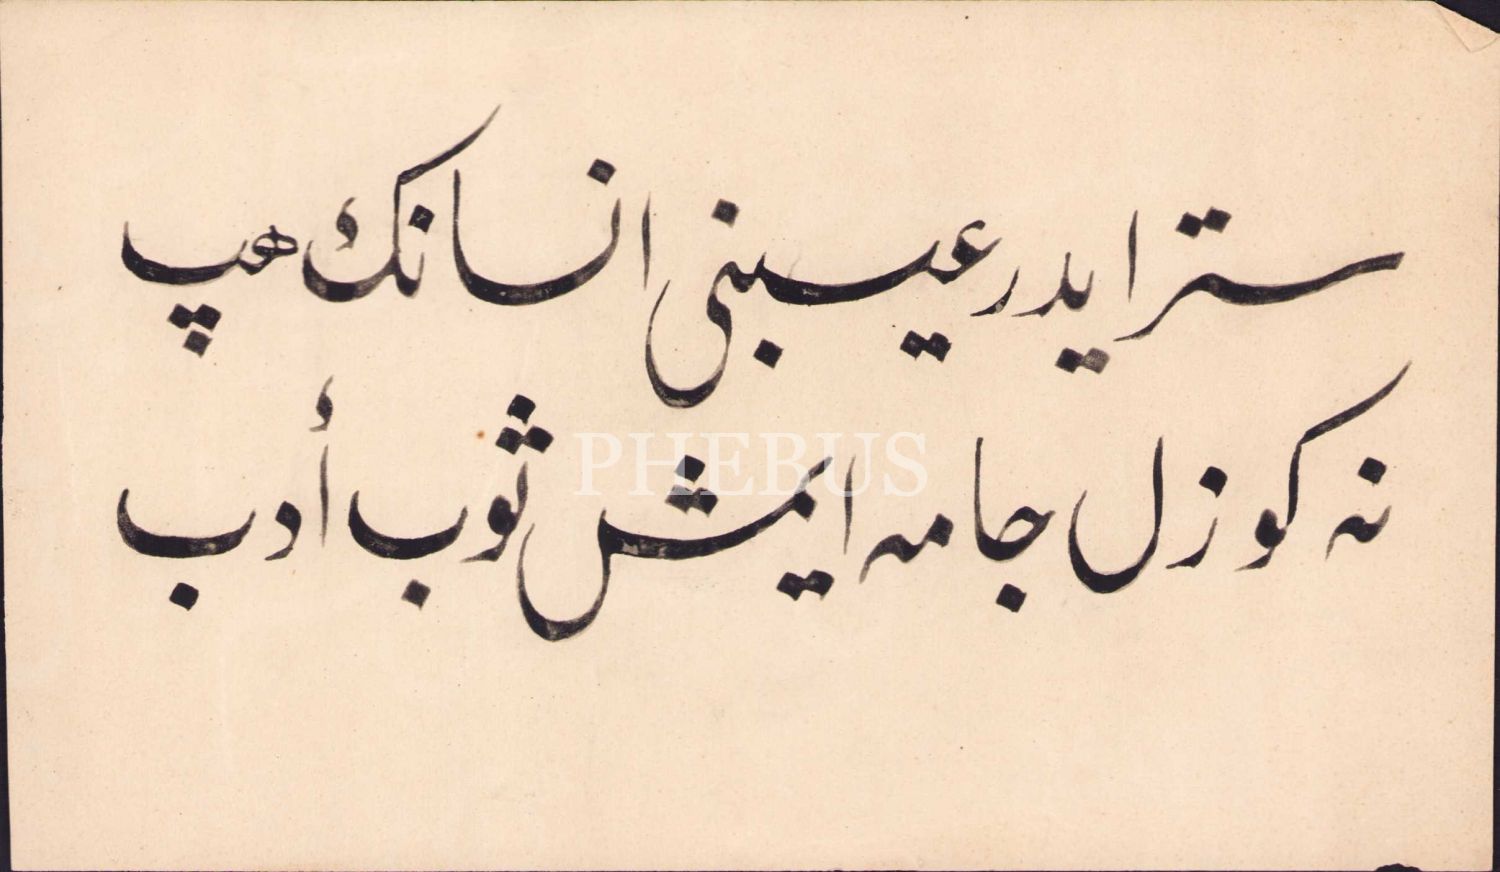 ستر ایدر عیبنی انسانك هپ
نه كوزل جامه ایمش ثوب أدب
PHEBUS